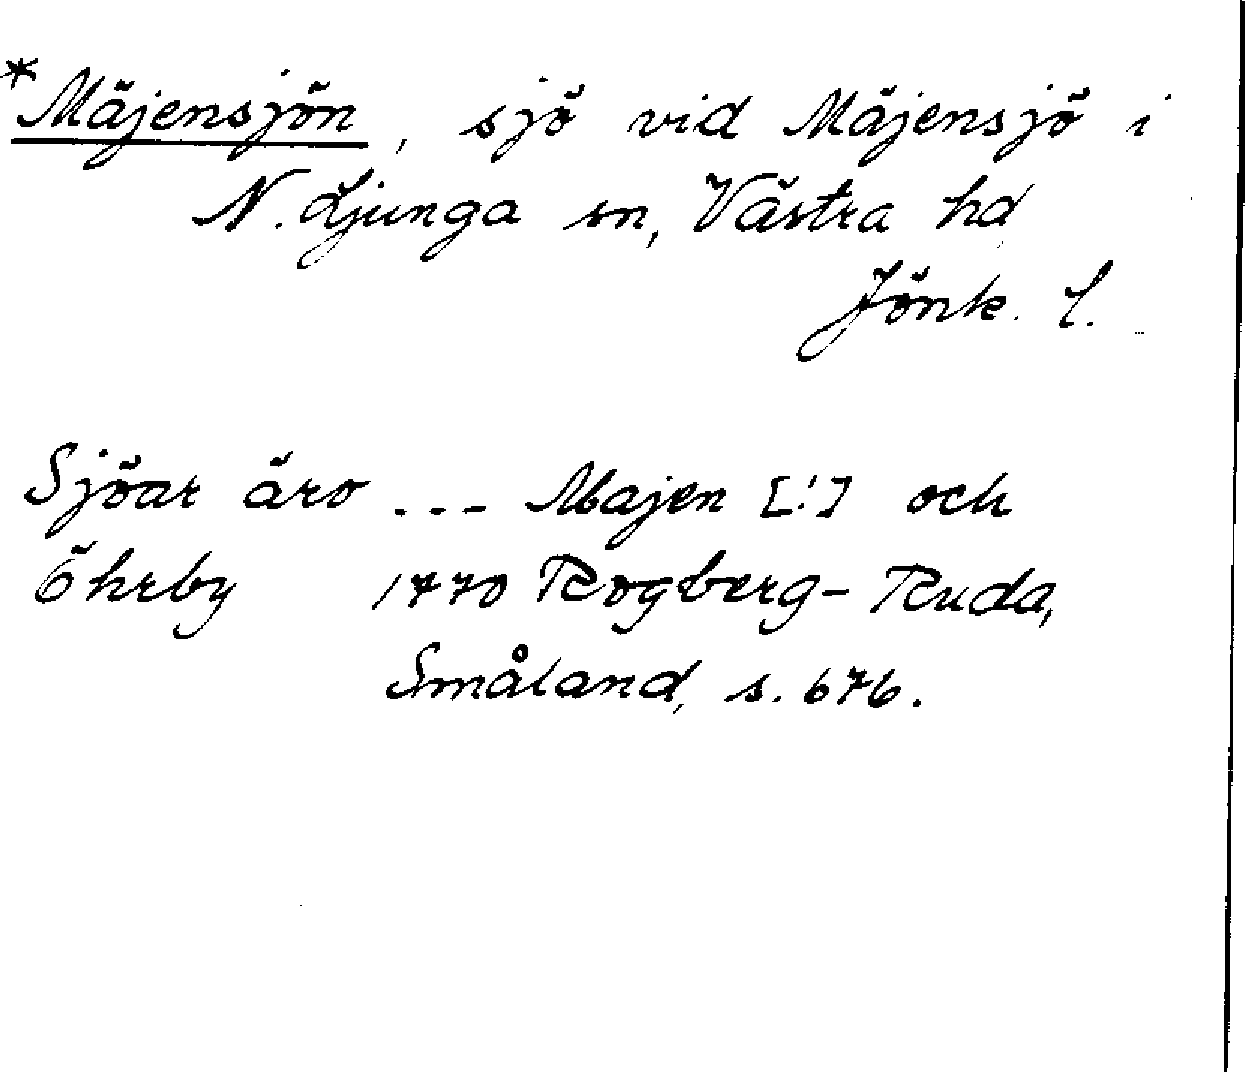 *Mäjensjön, sjö vid Mäjensjö i
N. Ljunga sn, Västra hd
Jönk. l.
Sjöar äro --- Majen [!] och
Öhrby 1770 Rogberg-Ruda,
Småland, s. 676.